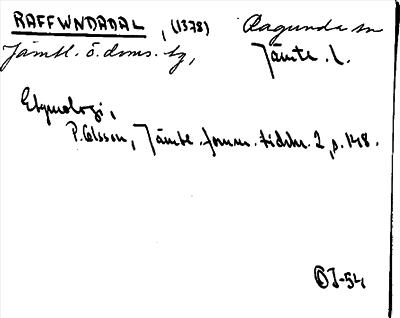 RAFFWNDADAL, (1378) Ragunda sn
Jämtl. ö. doms. tg, Jämtl. l.
Etymologi,
P. Olsson, Jämtl. fornm. tidskr. 2, s. 148.
OJ-54